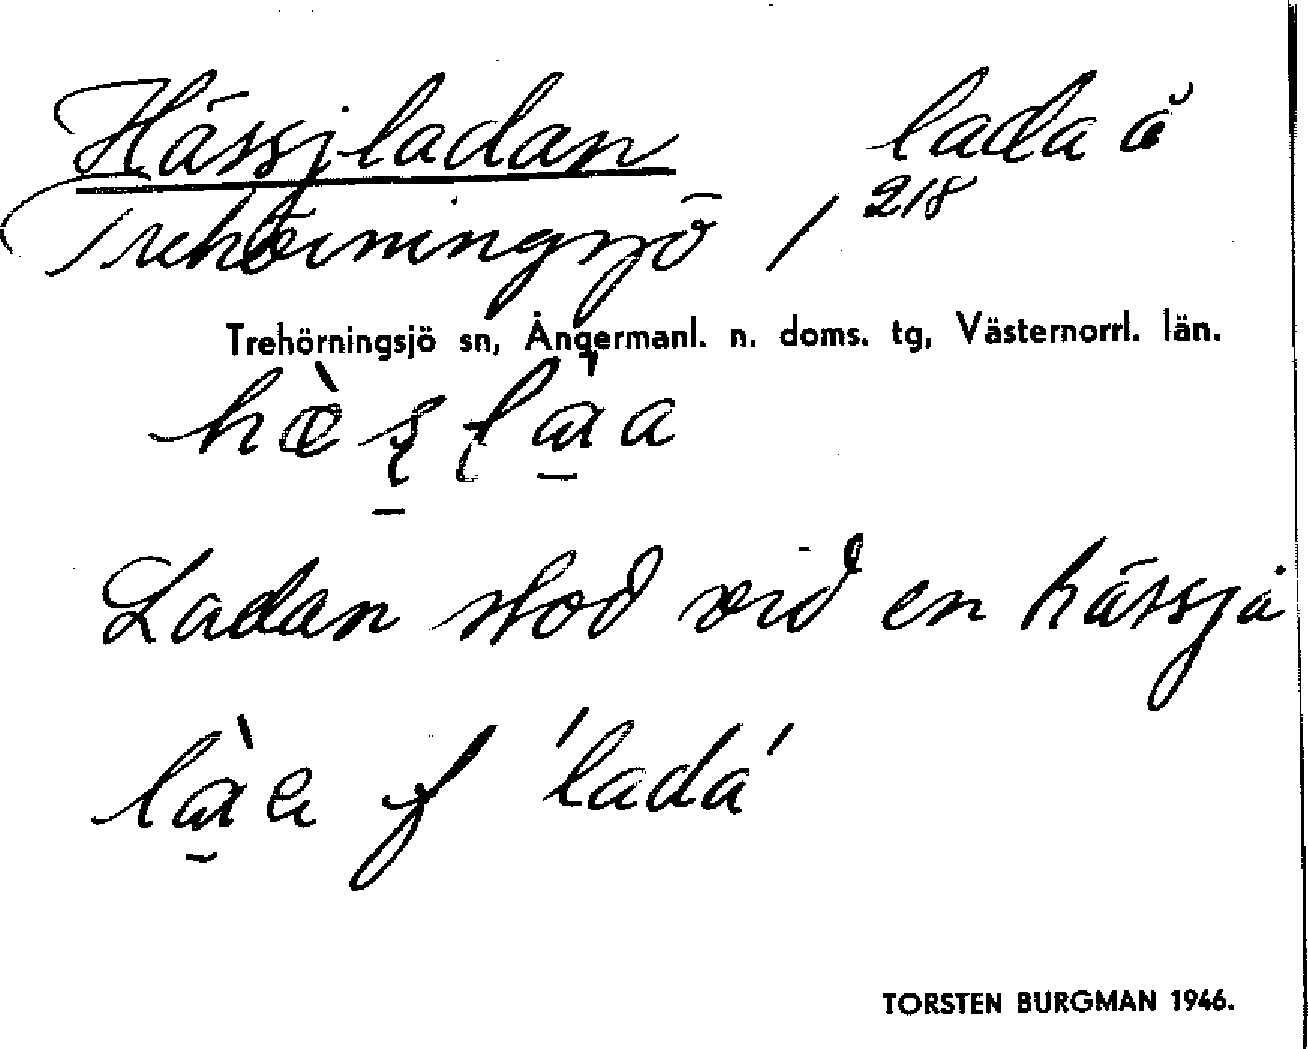 Hässjladan lada å
Trehörningsjö 1 218
Trehörningsjö sn, Ångermanl. n. doms. tg, Västernorrl. län.
Ladan stod vid en hässja
f 'lada'
TORSTEN BURGMAN 1946.